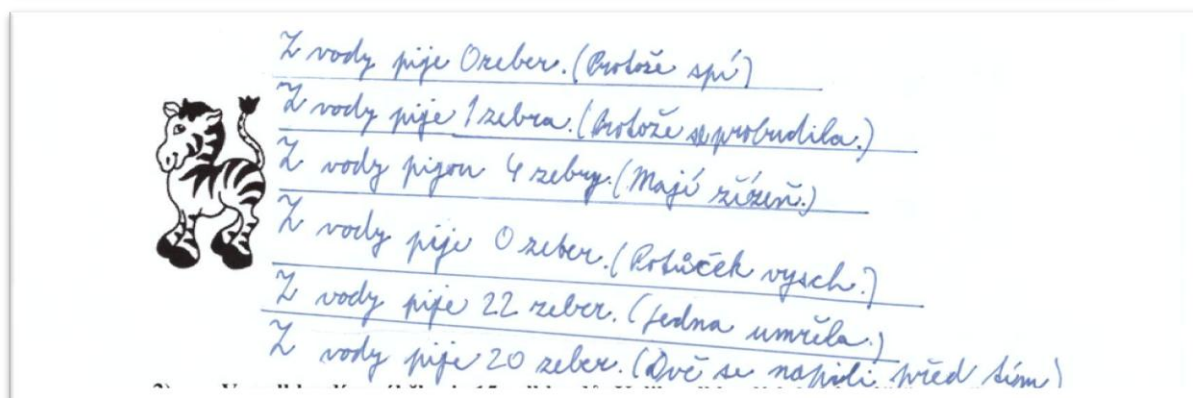 Z vody pije 0 zeber. (Protože spí)
Z vody pije 1 zebra. (Protože se probudila.)
Z vody pijou 4 zebry. (Mají žízeň.)
Z vody pije 0 zeber. (Potůček vysch.)
Z vody pije 22 zeber. (Jedna umřela.)
Z vody pije 20 zeber. (Dvě se napili před tím)